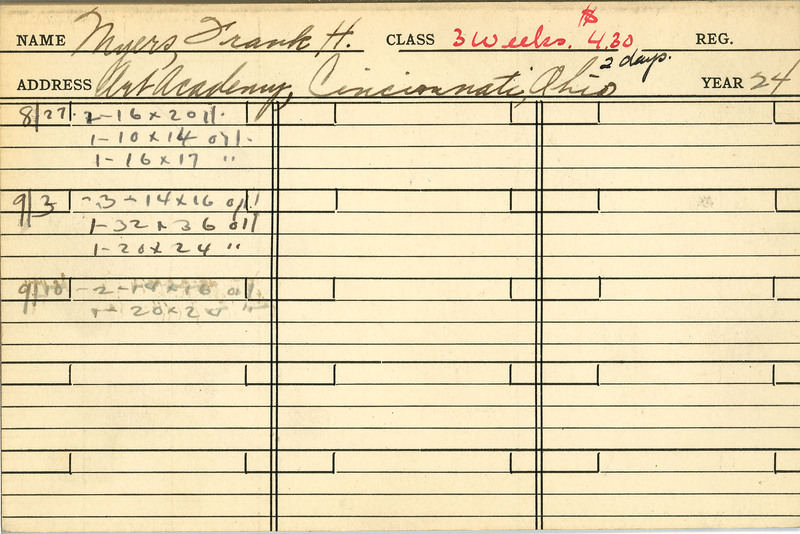 NAME Myers, Frank H. CLASS 3 Weeks. $4.30 REG.
2 days.
ADDRESS Art Academy, Cincinnati, Ohio YEAR 24
8/27 2-16x20 oil.
1-10x14 oil.
1-16x17 "
9/3 -3-14x16 oil
1-32x36 oil
1-20x24 "
9/10 -2-14x16 oil
1-20x20 "